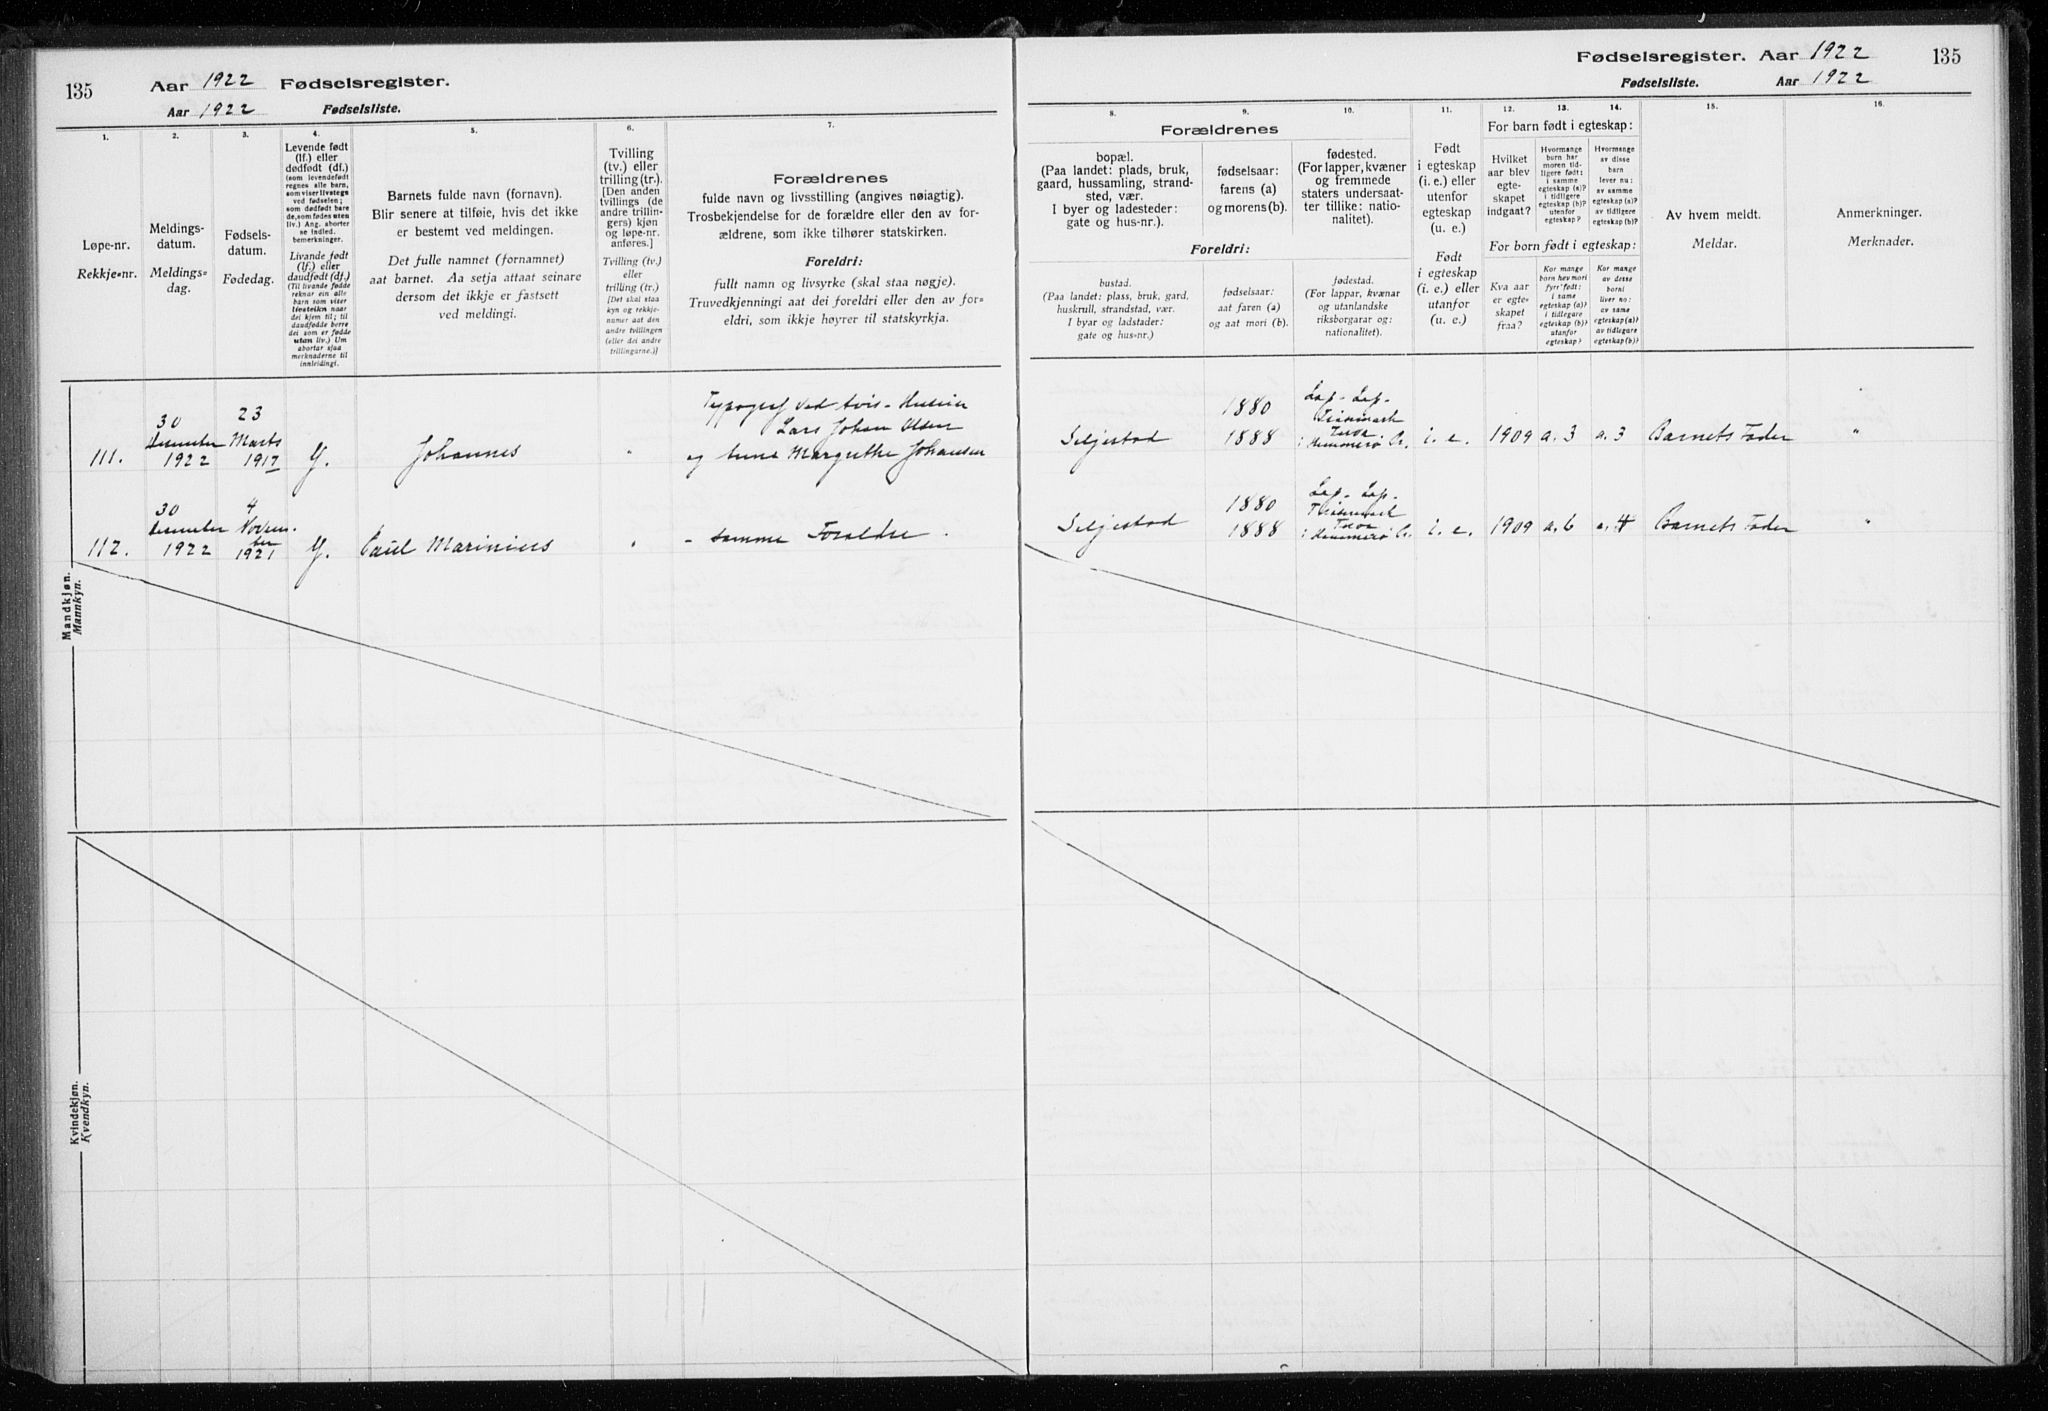 135
Aar 1922 Fødselsregister.
Aar 1922 Fødselsliste.
1. 2. 3. 4. 5. 6. 7.
Løpe-nr.
Rekkje-nr.
Meldings-
datum.
Meldings-
dag.
Fødsels-
datum.
Fødedag.
Levende født
(lf.) eller
dødfødt (df.)
(som levendefødt
regnes alle barn,
som viser livstegn
ved fødselen;
som dødfødt bare
de, som fødes uten
liv.) Ang. aborter
se indled.
bemerkninger.
Livande født
(lf.) eller
daudfødt (df.)
(Til livande fødde
reknar ein alle
barn som viser
livsteikn naar
dei kjem til; til
daudfødde berre
dei som er fødde
utan liv.) Um
abortar sjaa
merknaderne til
innleidingi.
Barnets fulde navn (fornavn).
Blir senere at tilføie, hvis det ikke
er bestemt ved meldingen.
Det fulle namnet (fornamnet)
aat barnet. Aa setja attaat seinare
dersom det ikkje er fastsett
ved meldingi.
Tvilling
(tv.) eller
trilling (tr.).
[Den anden
tvillings (de
andre trillin-
gers) kjøn
og løpe-nr.
anføres.]
Tvilling (tv.)
eller
trilling (tr.)
[Det skal staa
kyn og rekkje-
numer aat den
andre tvillingen
(eller dei andre
trillingarne.)]
Forældrenes
fulde navn og livsstilling (angives nøiagtig).
Trosbekjendelse for de forældre eller den av for-
ældrene, som ikke tilhører statskirken.
Foreldri:
fullt namn og livsyrke (skal staa nøgje).
Truvedkjenningi aat dei foreldri eller den av for-
eldri, som ikkje høyrer til statskyrkja.
Mandkjøn.
Mannkyn.
111.
30
Desember
1922
23
Marts
1917
lf.
Johannes
"
Typograf ved Avis-
Lars Johan Olsen
og Anne Margrethe Johansen
112.
30
Desember
1922
4
Novem-
ber
1921
lf.
Paul Marinius
"
- samme Forældre.
Kvindekjøn.
Kvendkyn.
Fødselsregister. Aar 1922 135
Fødselsliste. Aar 1922
8. 9. 10. 11. 12. 13. 14. 15. 16.
Forældrenes
bopæl.
(Paa landet: plads, bruk,
gaard, hussamling, strand-
sted, vær.
I byer og ladesteder:
gate og hus-nr.).
fødselsaar:
farens (a)
og morens (b).
fødested.
(For lapper, kvæner
og fremmede
staters undersaat-
ter tillike: natio-
nalitet).
Foreldri:
bustad.
(Paa landet: plass, bruk, gard,
huskrull, strandstad, vær.
I byar og ladstader:
gate og hus-nr.)
fødselsaar:
aat faren (a)
og aat mori (b).
fødestad.
(For lappar, kvænar
og utanlandske
riksborgarar og:
nationalitet).
Født
i egteskap
(i. e.) eller
utenfor
egteskap
(u. e.)
Født
i egteskap
(i. e.) eller
utanfor
(u. e.)
For barn født i egteskap:
Hvilket
aar blev
egte-
skapet
indgaat?
Hvormange
barn har
moren tid-
ligere født:
i samme
egteskap (a)?
i tidligere
egteskap (b)?
utenfor
egteskap?
Hvormange
av disse
barn
lever nu:
av samme
egteskap (a)?
av tidligere
egteskap (b)?
For born født i egteskap:
Kva aar
er egte-
skapet
fraa?
Kor mange
born hev mori
fyrr født:
i same
egteskap (a)?
i tidlegare
egteskap (b)?
utanfor
egteskap?
Kor mange
av desse
borni
liver no:
av same
egteskap (a)?
av tidlegare
egteskap (b)?
Av hvem meldt.
Meldar.
Anmerkninger.
Merknader.
Seljestad
1880
1888
Lap. Lap.
i Hammerø Pr.
i. e.
1909
a. 3
a. 3
Barnets Fader
"
Seljestad
1880
1888
Lap. Lap.
i Hammerø Pr.
i. e.
1909
a. 6
a. 4
Barnets Fader
"